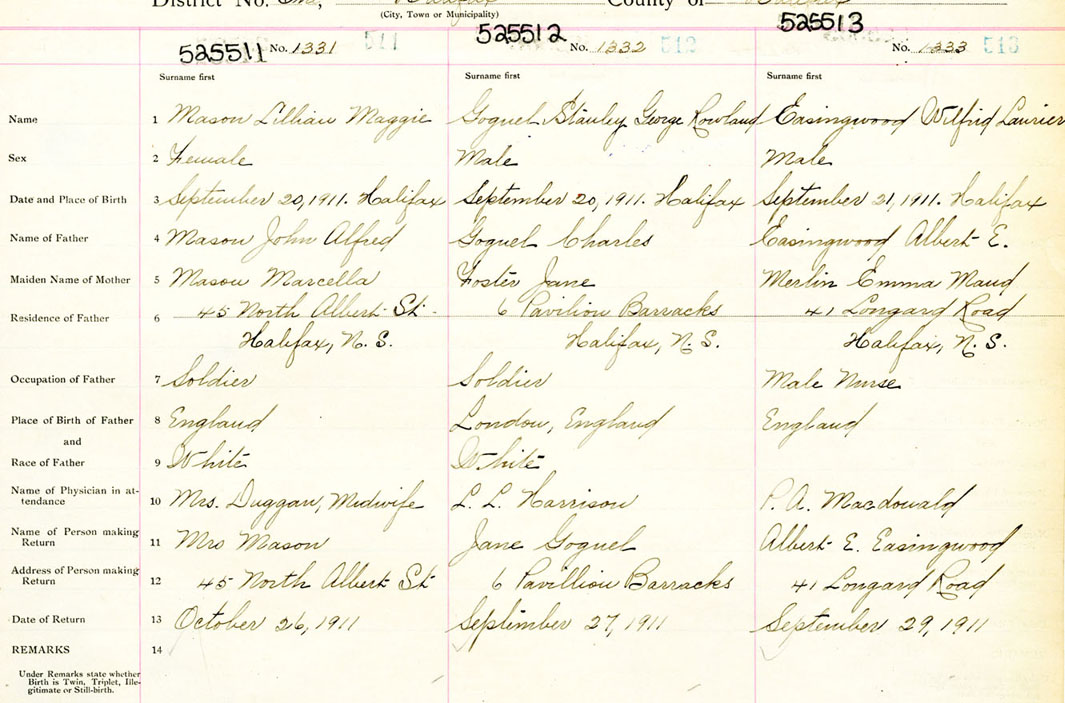 District No. County of
(City, Town or Municipality)
525511 No. 1331 511 525512 No. 1332 512 525513 No. 1333 513
Surname first Surname first Surname first
Name 1 Mason Lillian Maggie Goguel Stanley George Rowland Easingwood Wilfrid Laurier
Sex 2 Female Male Male
Date and Place of Birth 3 September 20, 1911. Halifax September 20, 1911. Halifax September 21, 1911. Halifax
Name of Father 4 Mason John Alfred Goguel Charles Easingwood Albert E.
Maiden Name of Mother 5 Mason Marcella Foster Jane Merlin Emma Maud
Residence of Father 6 45 North Albert St. 6 Pavilion Barracks 41 Longard Road
Halifax, N. S. Halifax, N. S. Halifax, N. S.
Occupation of Father 7 Soldier Soldier Male Nurse
Place of Birth of Father 8 England London, England England
and
Race of Father 9 White White
Name of Physician in at-
tendance 10 Mrs. Duggan, Midwife L. L. Harrison P. A. Macdowald
Name of Person making
Return 11 Mrs Mason Jane Goguel Albert E. Easingwood
Address of Person making
Return 12 45 North Albert St 6 Pavillion Barracks 41 Longard Road
Date of Return 13 October 26, 1911 September 27, 1911 September 29, 1911
REMARKS 14
Under Remarks state whether
Birth is Twin, Triplet, Ille-
gitimate or Still-birth.